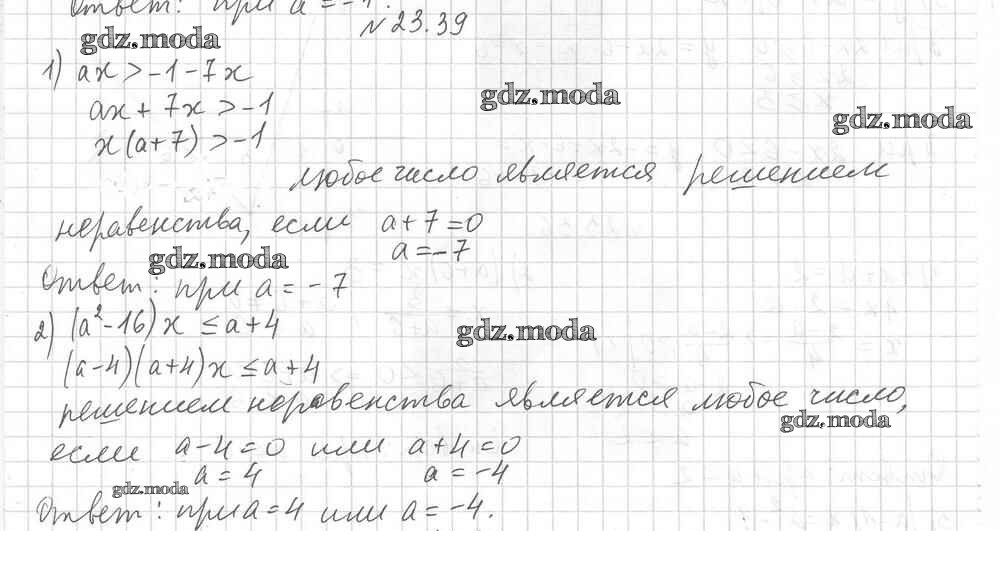 Ответ: при a = -1.
№ 23.39
gdz.moda
1) ax > -1 - 7x
gdz.moda
ax + 7x > -1
gdz.moda
x(a+7) > -1
любое число является решением
неравенства, если a + 7 = 0
a = -7
gdz.moda
Ответ: при a = -7
2) (a²-16)x ≤ a+4
gdz.moda
(a-4)(a+4)x ≤ a+4
решением неравенства является любое число,
gdz.moda
если a-4=0 или a+4=0
a = 4 a = -4
gdz.moda
Ответ: при a=4 или a=-4.